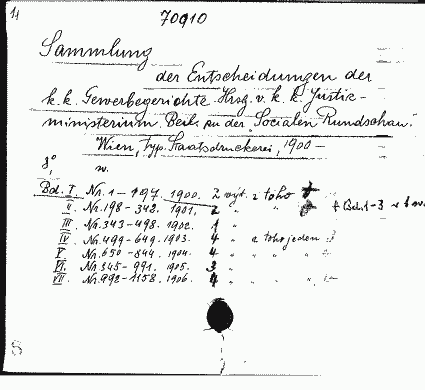 70910
Sammlung
der Entscheidungen der
k. k. Gewerbegerichte. Hrsg. v. k. k. Justiz-
ministerium. Beil. zu der „Socialen Rundschau."
Wien, typ. Staatsdruckerei, 1900-
8°
w.
Bd. I. Nr. 1-197. 1900. 2 výt. z toho
II. Nr. 198-342. 1901. 2 " "
III. Nr. 343-498. 1902. 1 "
IV. Nr. 499-649. 1903. 4 " z toho jeden
V. Nr. 650-844. 1904. 4 " " "
VI. Nr. 845-991. 1905. 3 "
VII. Nr. 992-1158. 1906. 4 " " "